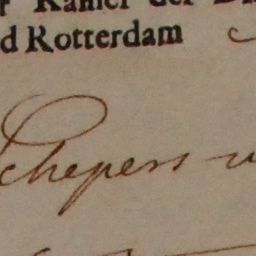 r Kamer der
d Rotterdam
Schepers